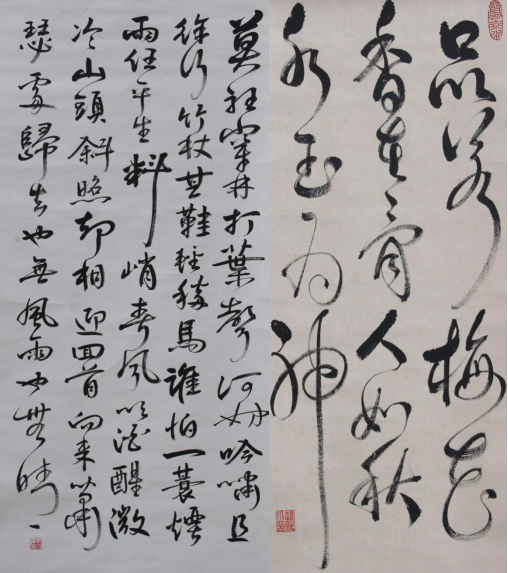 品若梅花
香在骨人如秋
水玉为神
莫聽穿林打葉聲何妨吟嘯且
徐行竹杖芒鞋輕勝馬誰怕一蓑煙
雨任平生料峭春風吹酒醒微
冷山頭斜照却相迎回首向來蕭
瑟處歸去也無風雨也無晴